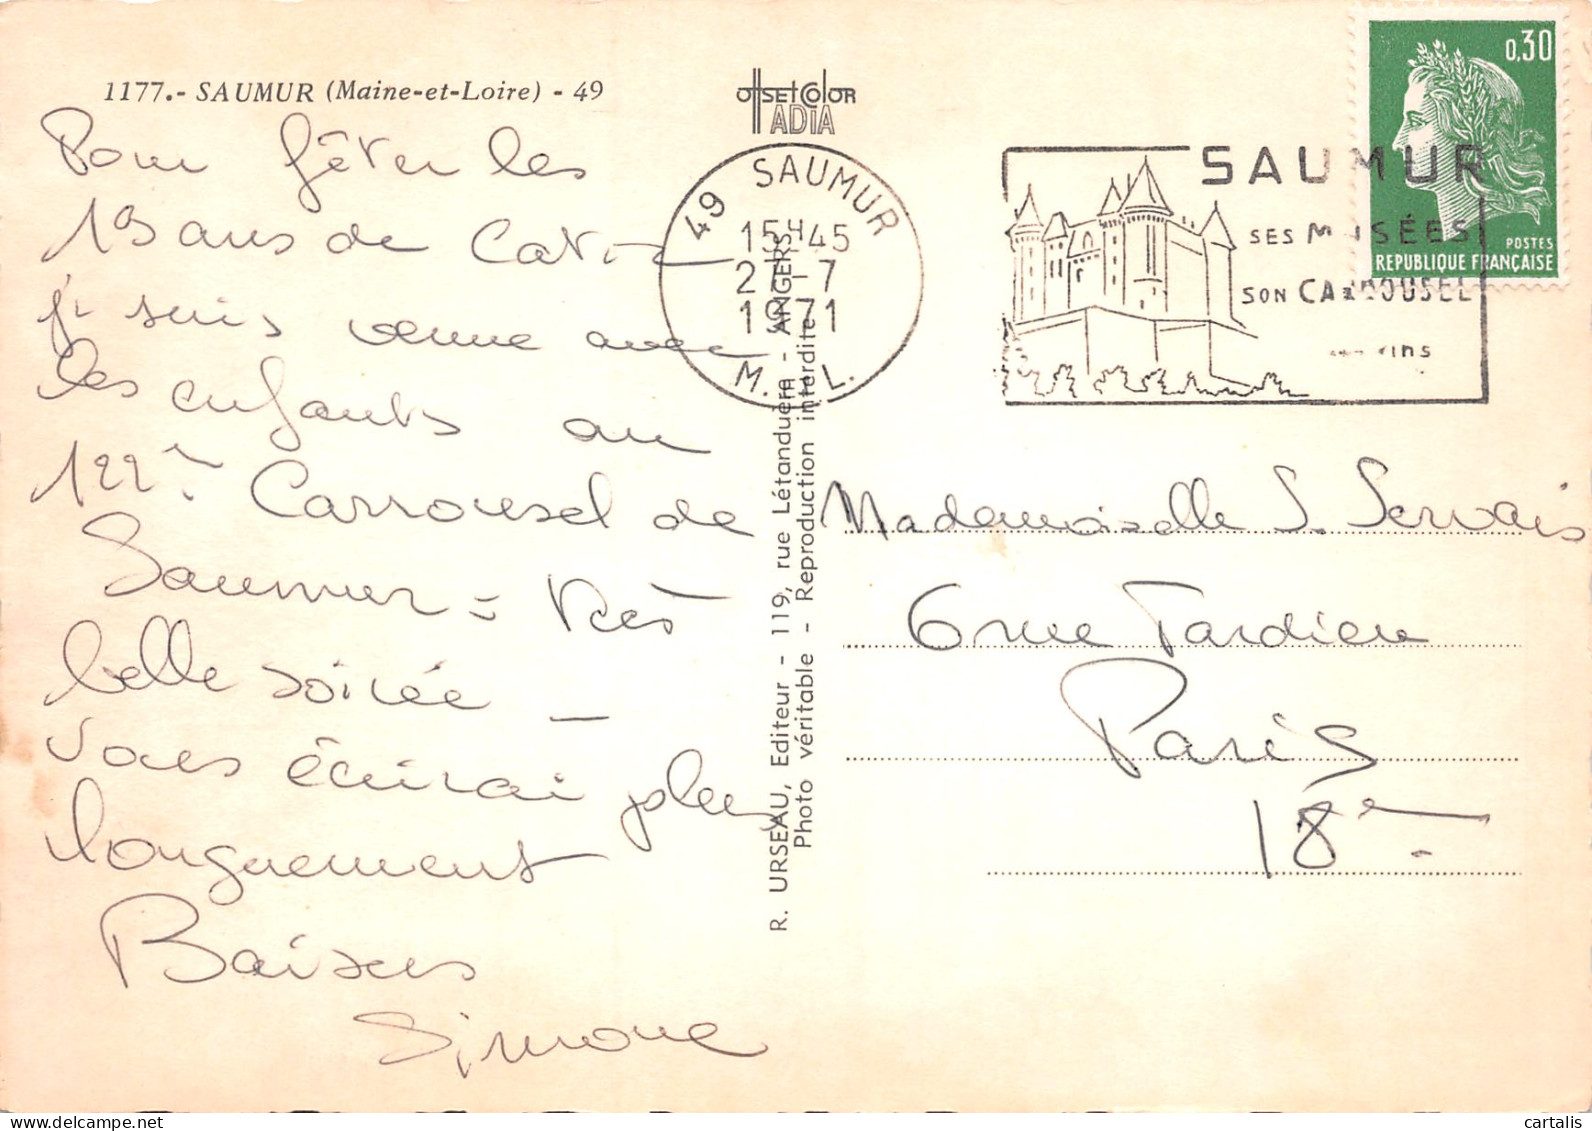 1177.- SAUMUR (Maine-et-Loire) - 49
offset color
IADIA
Pour fêter les
19 ans de
je suis venue avec
les enfants au
122e Carrousel de
Saumur = très
belle soirée _
Vous écrirai plus
longuement
Baisers
Simone
R. URSEAU, Editeur - 119, rue Létanduère - ANGERS
Photo véritable - Reproduction interdite
49 SAUMUR
15H45
27-7
1971
M. & L.
SAUMUR
SES MUSÉES
SON CARROUSEL
vins
0,30
POSTES
REPUBLIQUE FRANÇAISE
Mademoiselle S. Servais
6 rue Tardieu
Paris
18e
cartalis